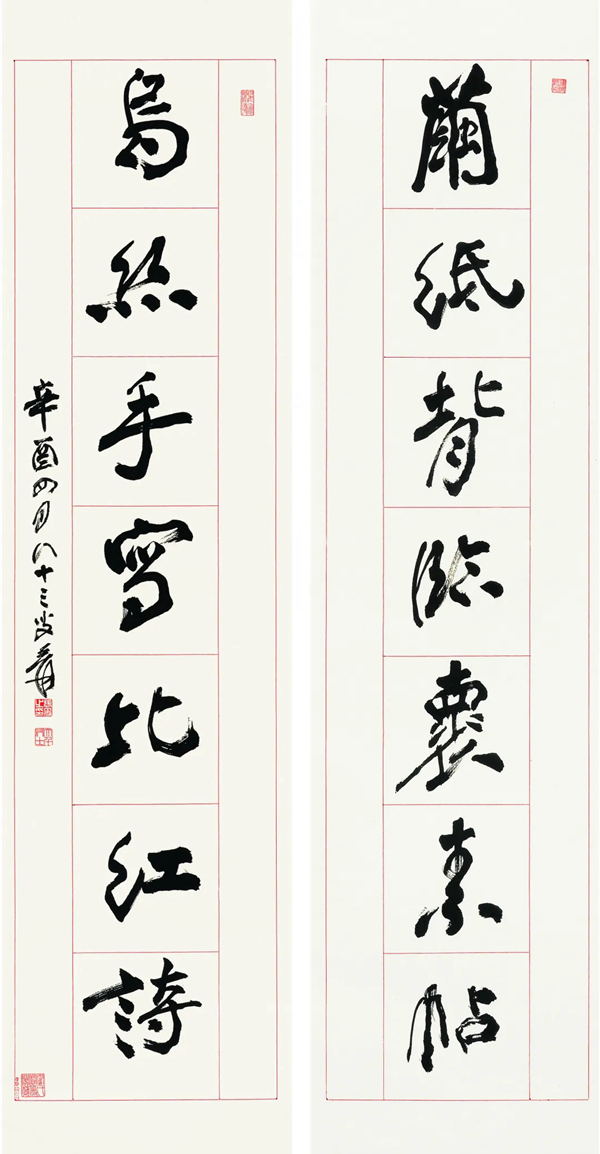 繭紙背臨褱素帖
烏絲手寫比紅詩
辛酉四月八十三叟爰